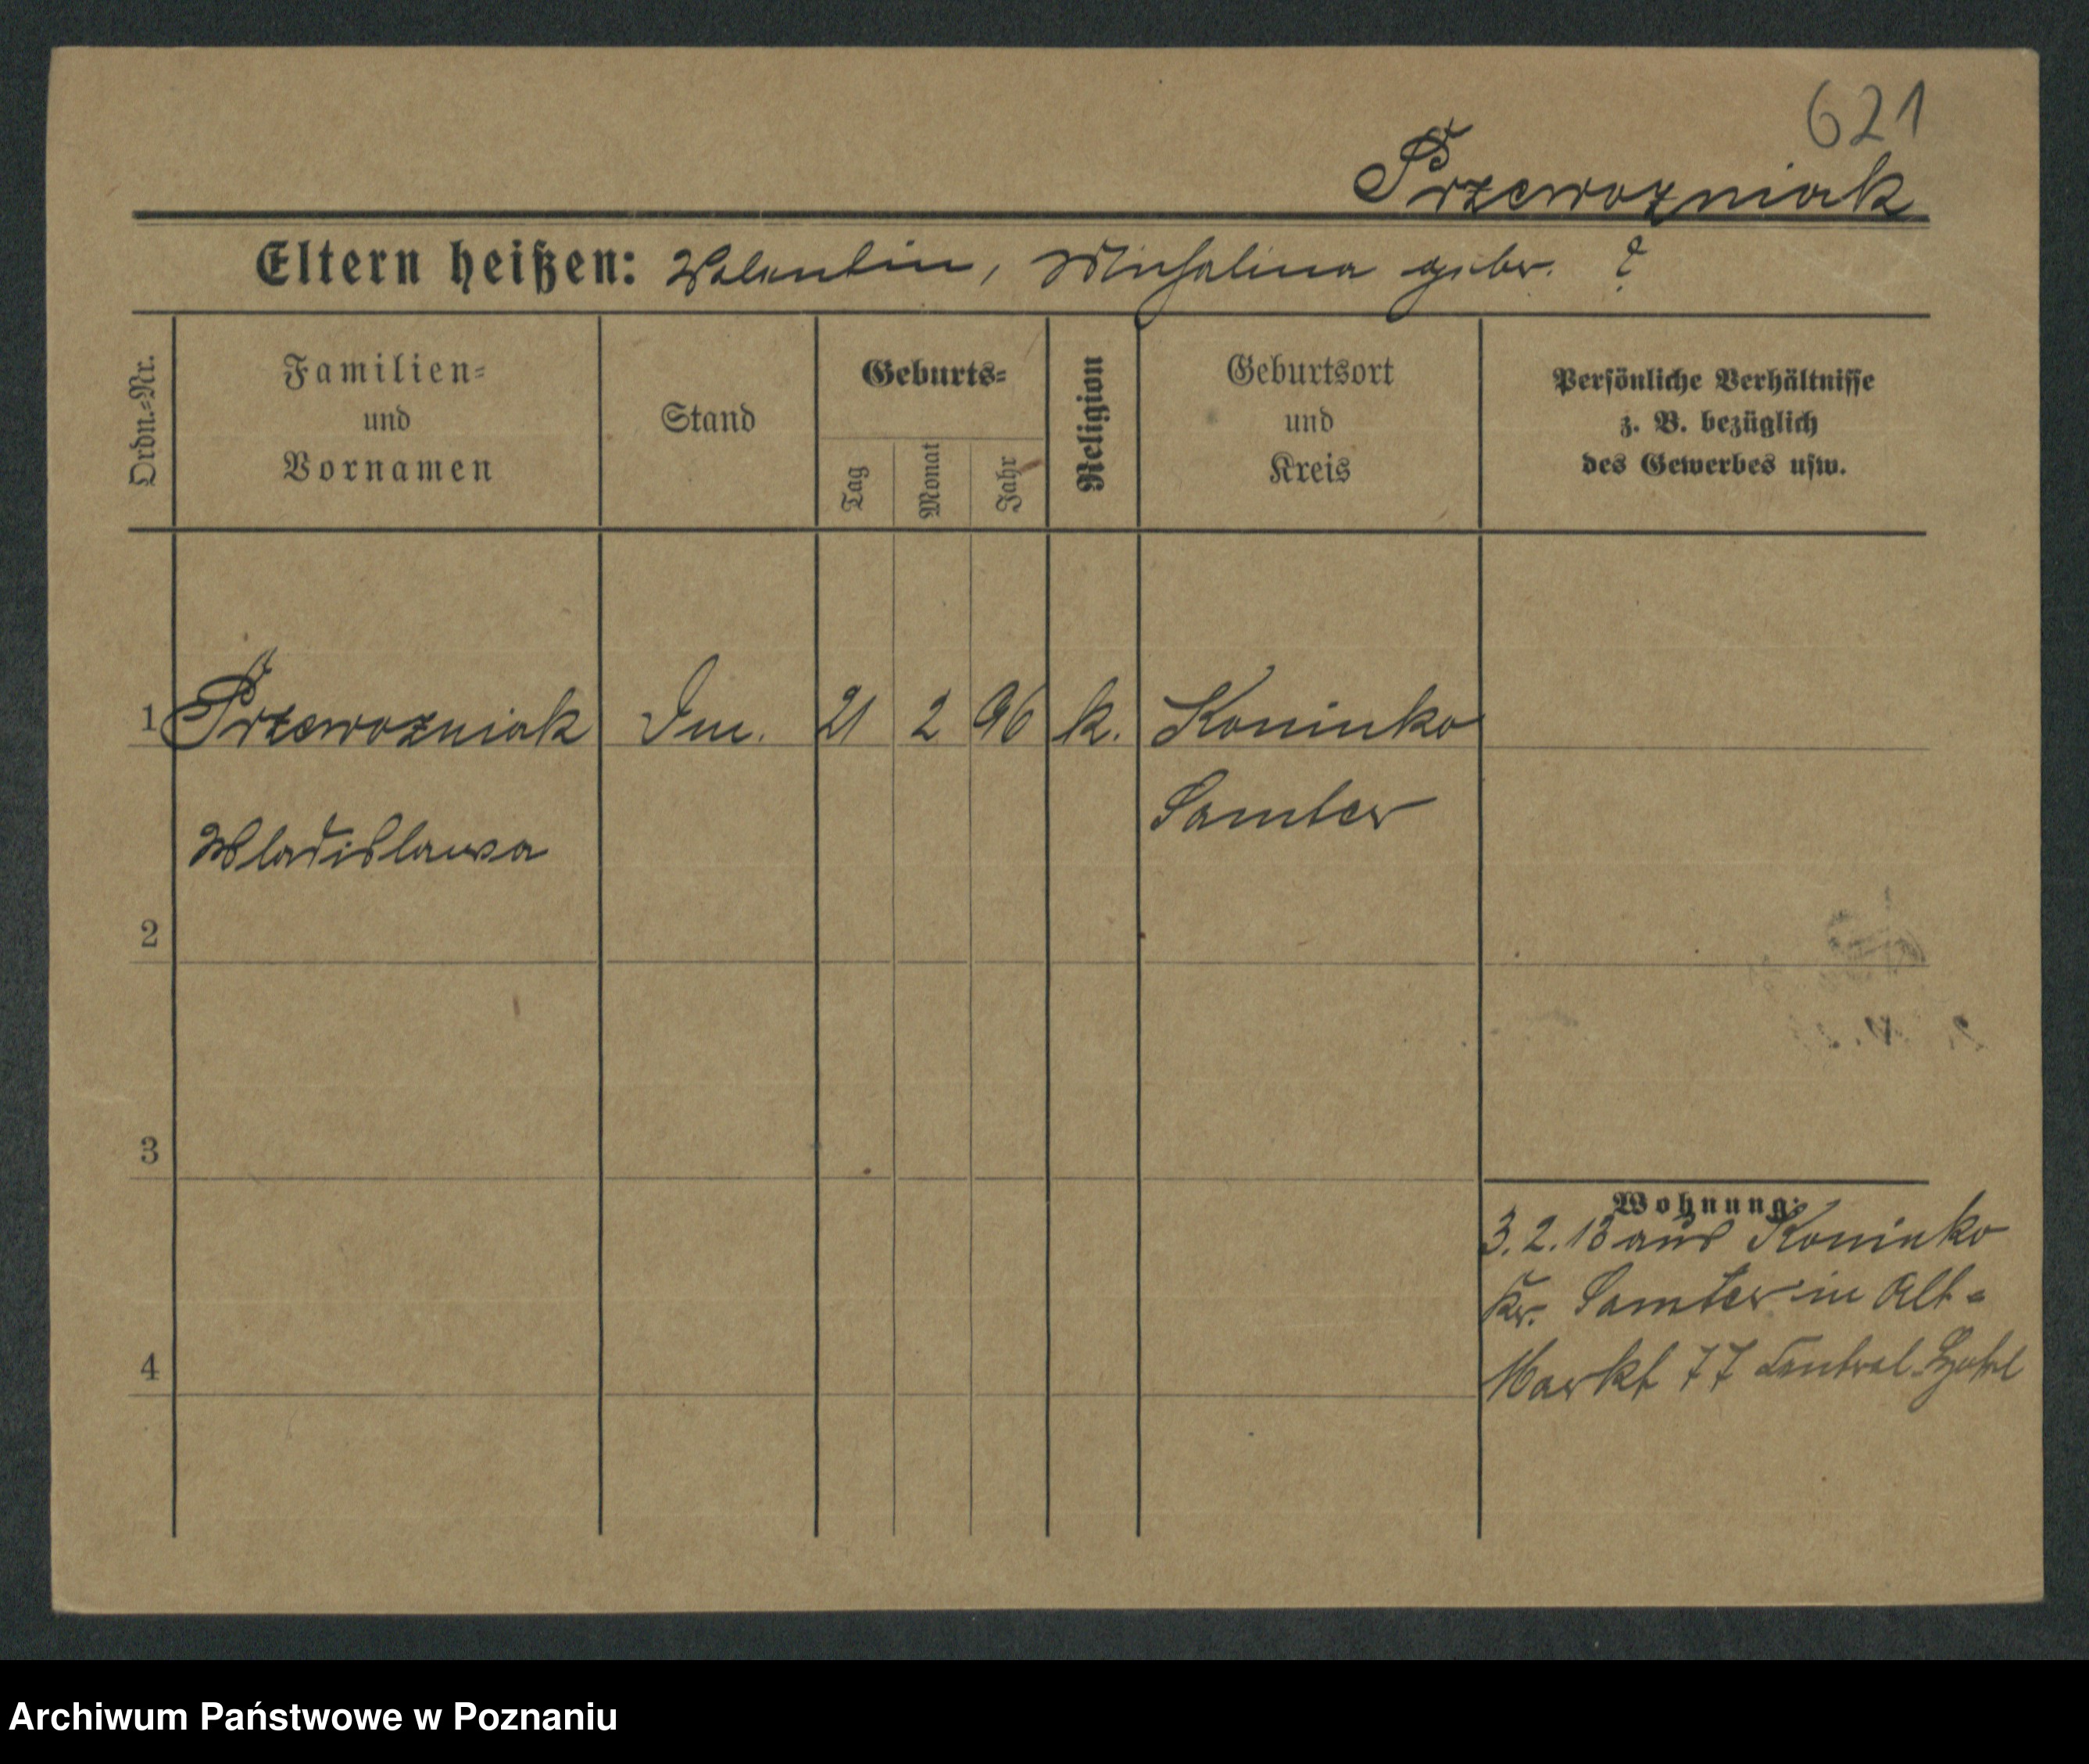 621
Przewozniak
Eltern heißen: Valentin, Michalina gebor. ?
Ordn.-Nr.
Familien-
und
Vornamen
Stand
Geburts-
Tag
Monat
Jahr
Religion
Geburtsort
und
Kreis
Persönliche Verhältnisse
z. B. bezüglich
des Gewerbes usw.
1 Przewozniak 21 2 96 k. Koninko
Samter
Wladislawa
2
3
Wohnung:
3. 2. 13 aus Koninko
Kr. Samter in Alt-
4
Markt 77 Central-Hotel
Archiwum Państwowe w Poznaniu